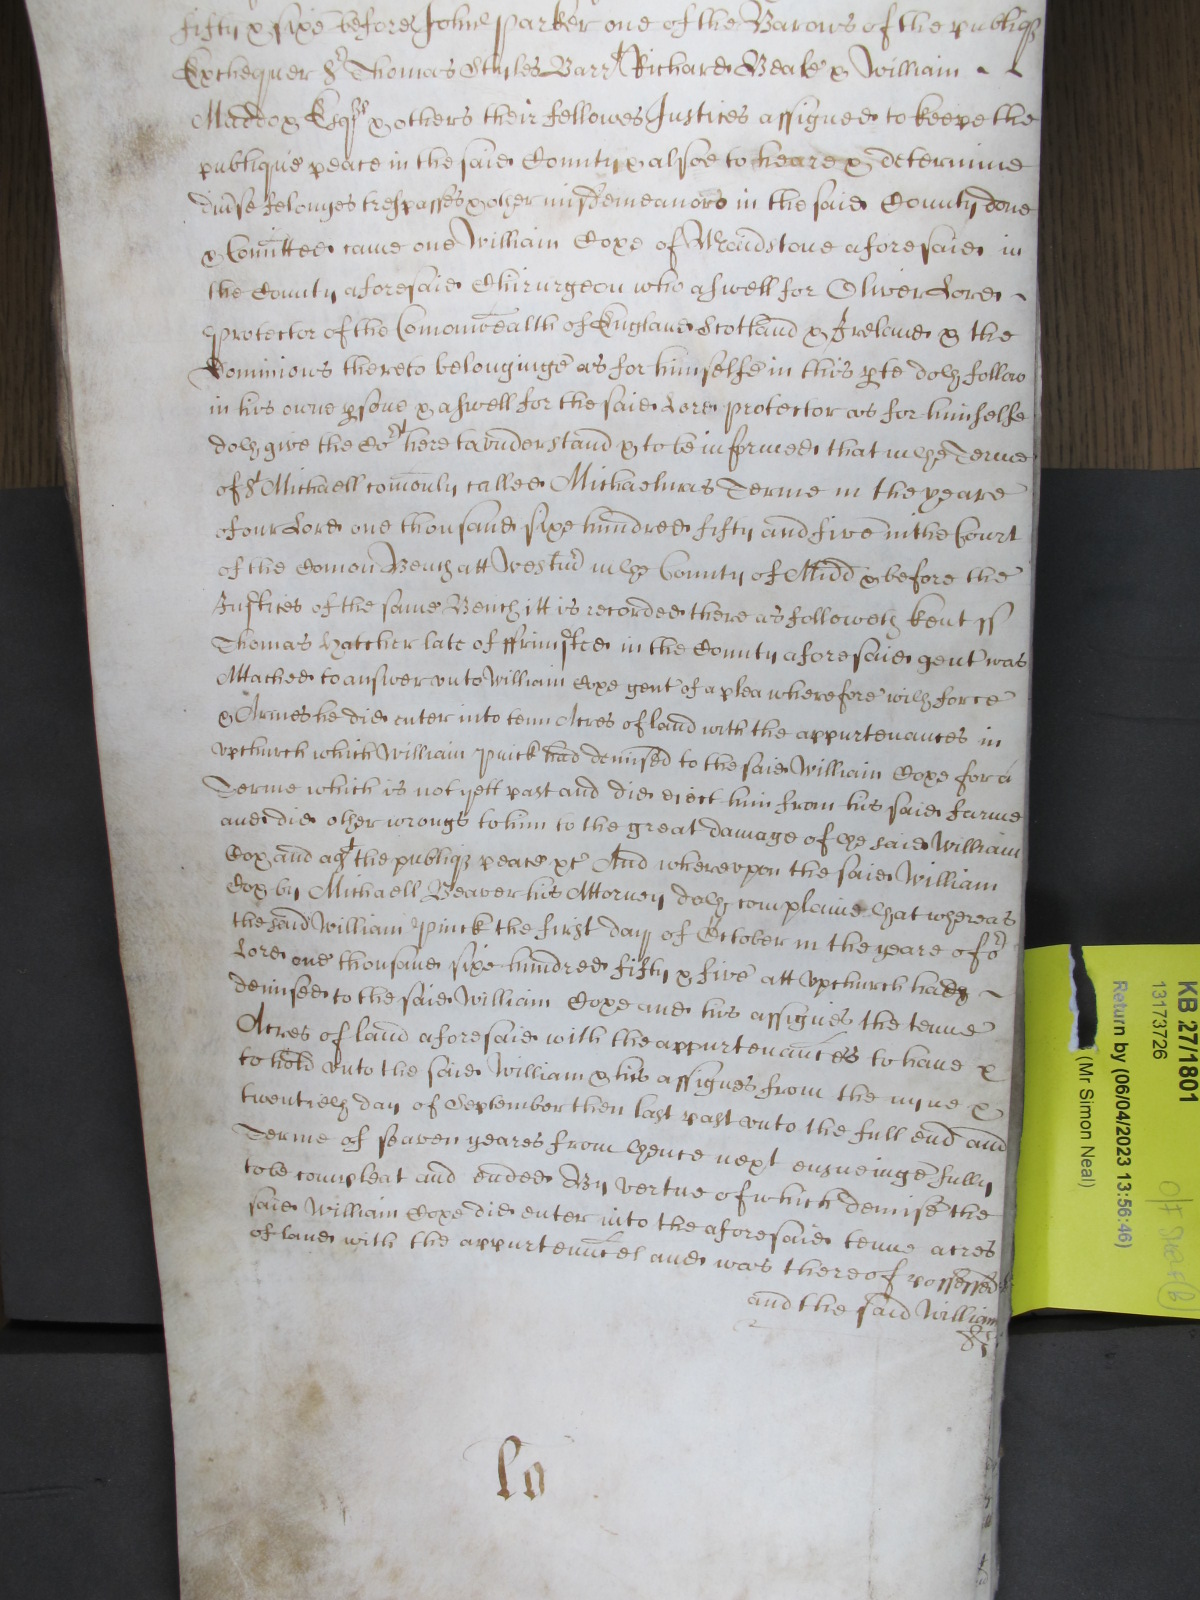 fifty & sixe before John Parker one of the Barons of the publiq
Exchequer Sr Thomas Styles Barrt Richard Beale & William
Maddox Esqrs & others their fellowes Justices assigned to keepe the
publique peace in the said County & alsoe to heare & determine
divse felonyes trespasses & other misdemeanors in the said County done
& Comitted came one William Coxe of Maidstone aforesaid in
the County aforesaid Chirurgeon who aswell for Oliver Lord
Protector of the Comonwealth of England Scotland & Ireland & the
Dominions thereto belonginge as for himselfe in this pte doth follow
in his owne psone & aswell for the said Lord Protector as for himselfe
doth give the Cort here to understand & to be informed that in the Terme
of St Michaell comonly called Michaelmas Terme in the yeare
of our Lord one thousand sixe hundred fifty and five in the Court
of the Comon Bench att Westmr in the County of Midd & before the
Justices of the same Bench itt is recorded there as followeth Kent ss
Thomas Hatcher late of ffrinsted in the County aforesaid gent was
Attached to answer unto William Coxe gent of a plea wherefore with force
& Armes he did enter into tenn Acres of land with the appurtenances in
Upchurch which William Pinck had demised to the said William Coxe for a
Terme which is not yett past and did eject him from his said farme
and did other wrongs to him to the great damage of the said William
Cox and agt the publiq peace &c And whereupon the said William
Cox by Michaell Beaver his Attorney doth complaine that whereas
the said William Pinck the first day of October in the yeare of or
Lord one thousand sixe hundred fifty & five att Upchurch had
demised to the said William Coxe and his assignes the tenne
Acres of land aforesaid with the appurtenances to have &
to hold unto the said William & his assignes from the nyne &
twentieth day of September then last past unto the full end and
Terme of seaven yeares from thence next ensueinge fully
to be compleat and ended By vertue of which demise the
said William Coxe did enter into the aforesaid tenne acres
of land with the appurtenncesand was thereof possessed
and the said William
&c
lo
KB 27/1801
13173726
Return by (06/04/2023 13:56:46)
(Mr Simon Neal)